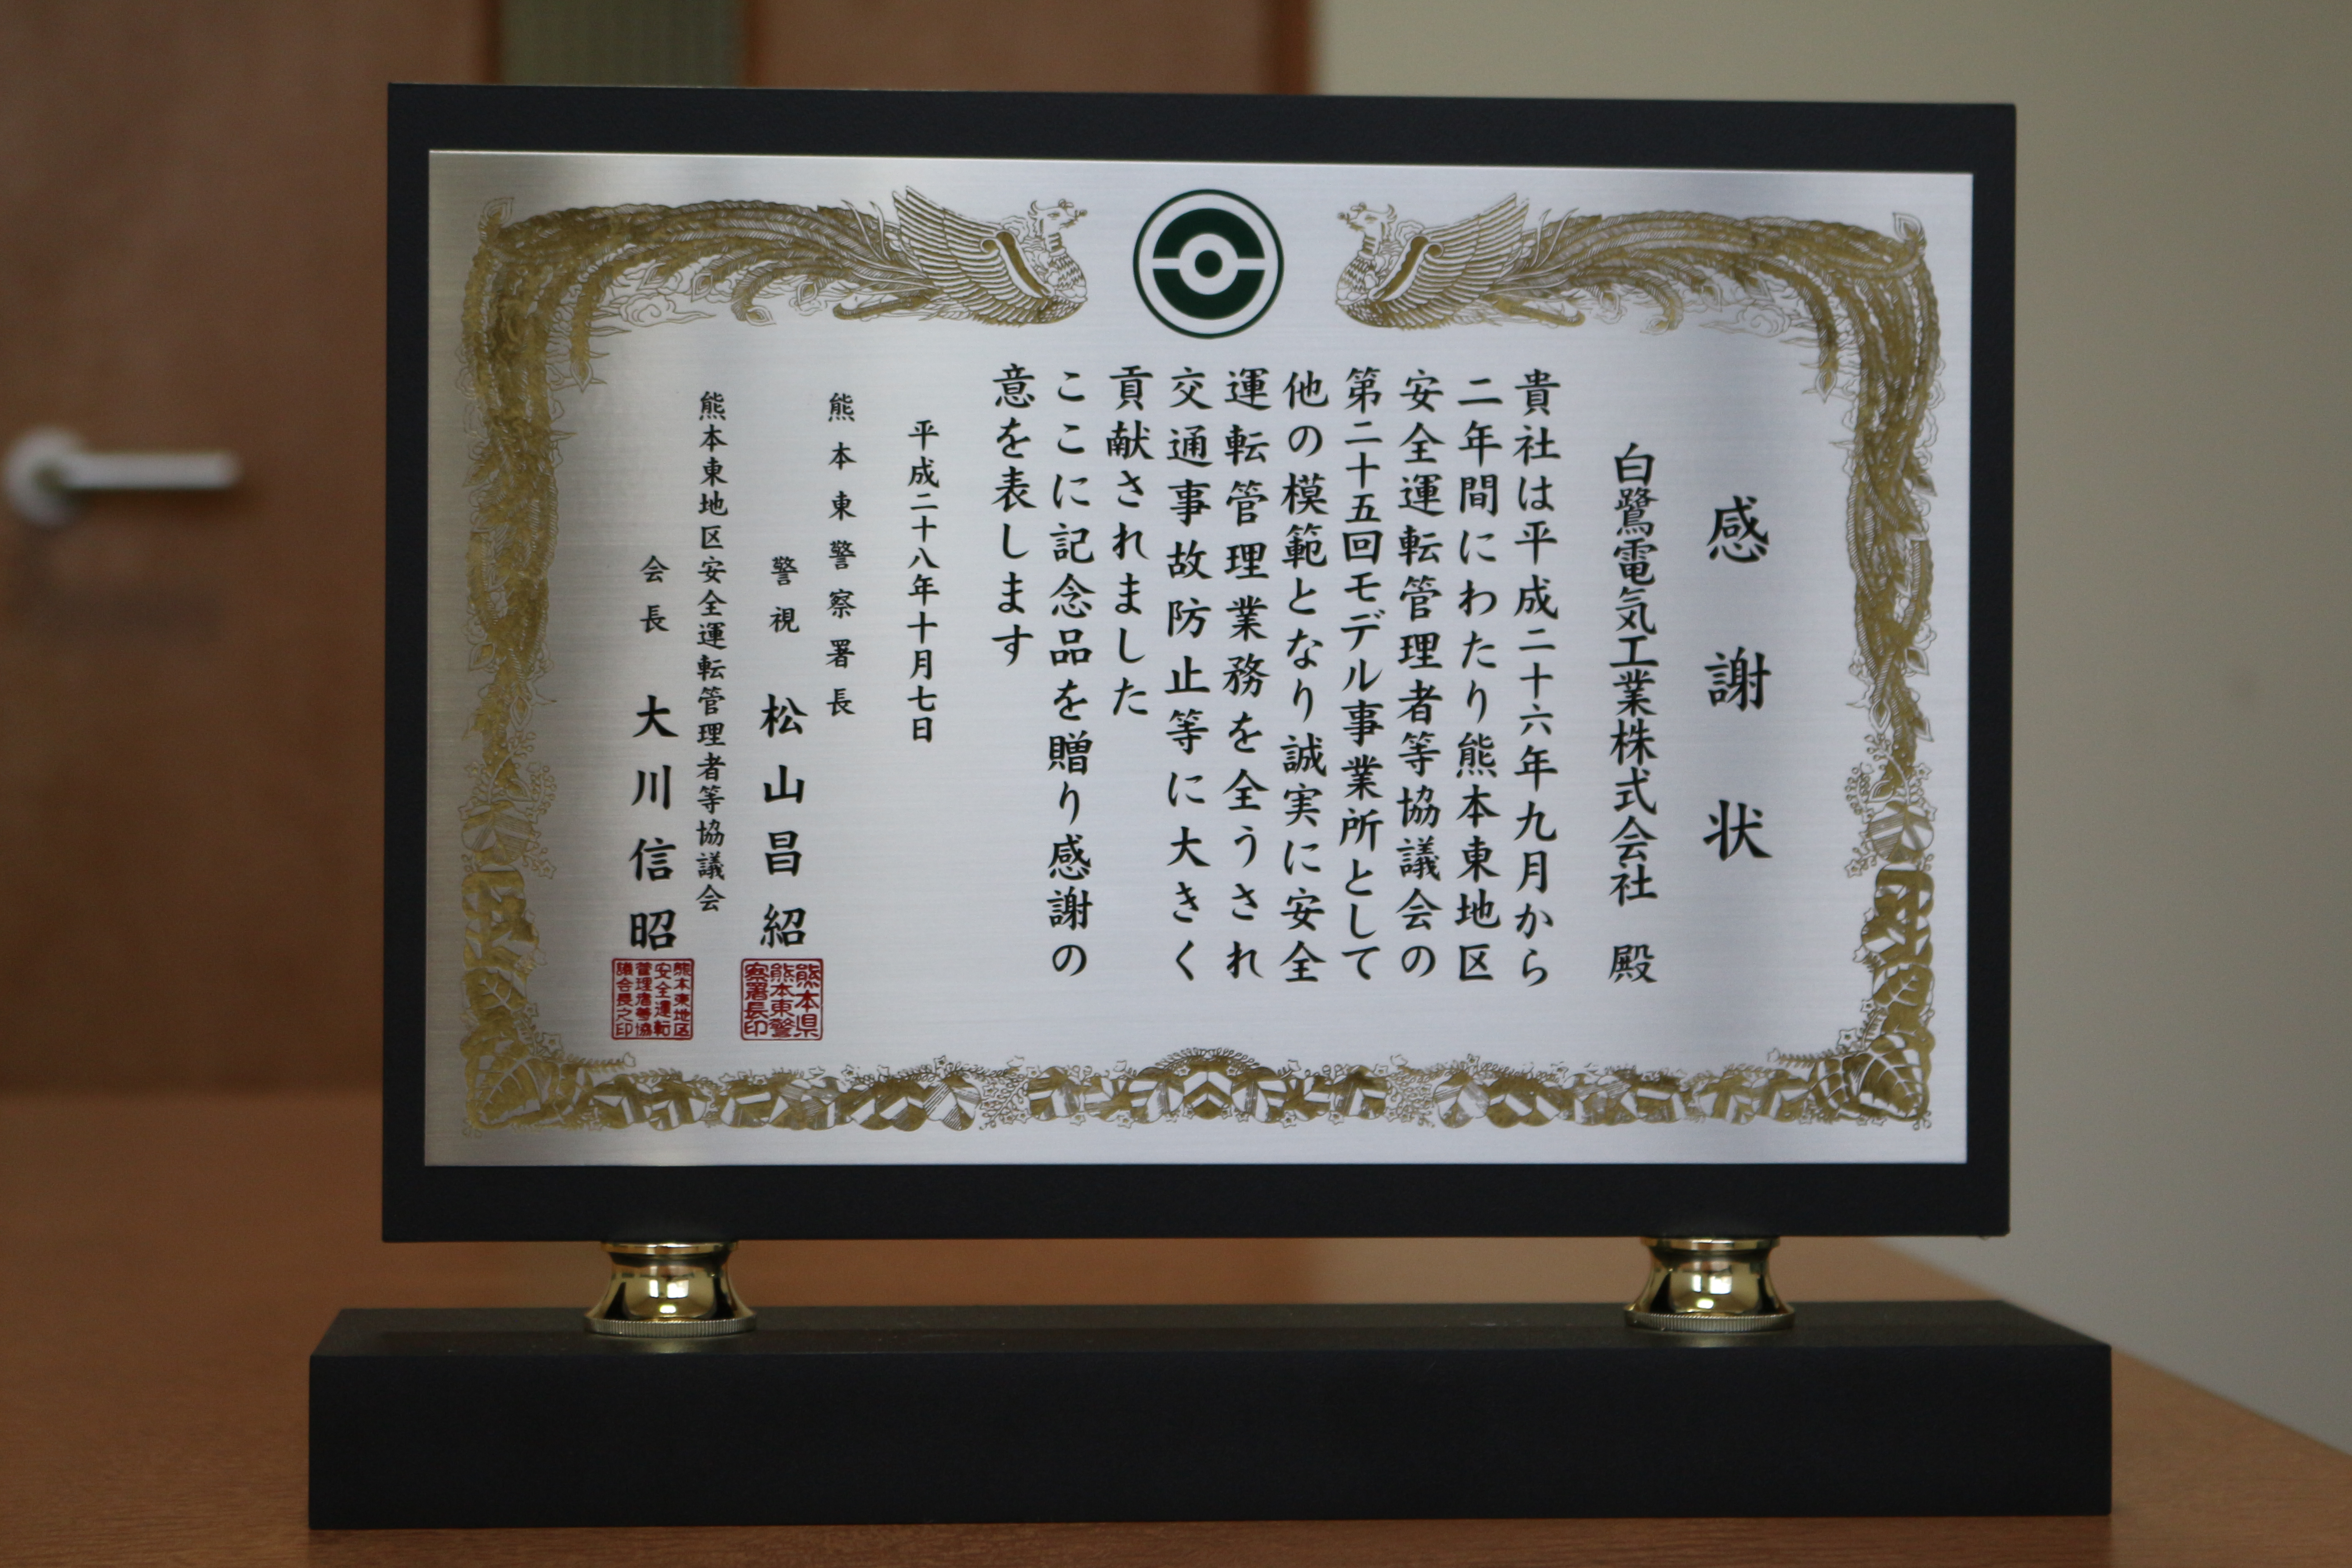 感謝状
白鷺電気工業株式会社 殿
貴社は平成二十六年九月から
二年間にわたり熊本東地区
安全運転管理者等協議会の
第二十五回モデル事業所として
他の模範となり誠実に安全
運転管理業務を全うされ
交通事故防止等に大きく
貢献されました
ここに記念品を贈り感謝の
意を表します
平成二十八年十月七日
熊本東警察署長
警視 松山昌紹
熊本県
熊本東警
察署長印
熊本東地区安全運転管理者等協議会
会長 大川信昭
熊本東地区
安全運転
管理者等協
議会長之印